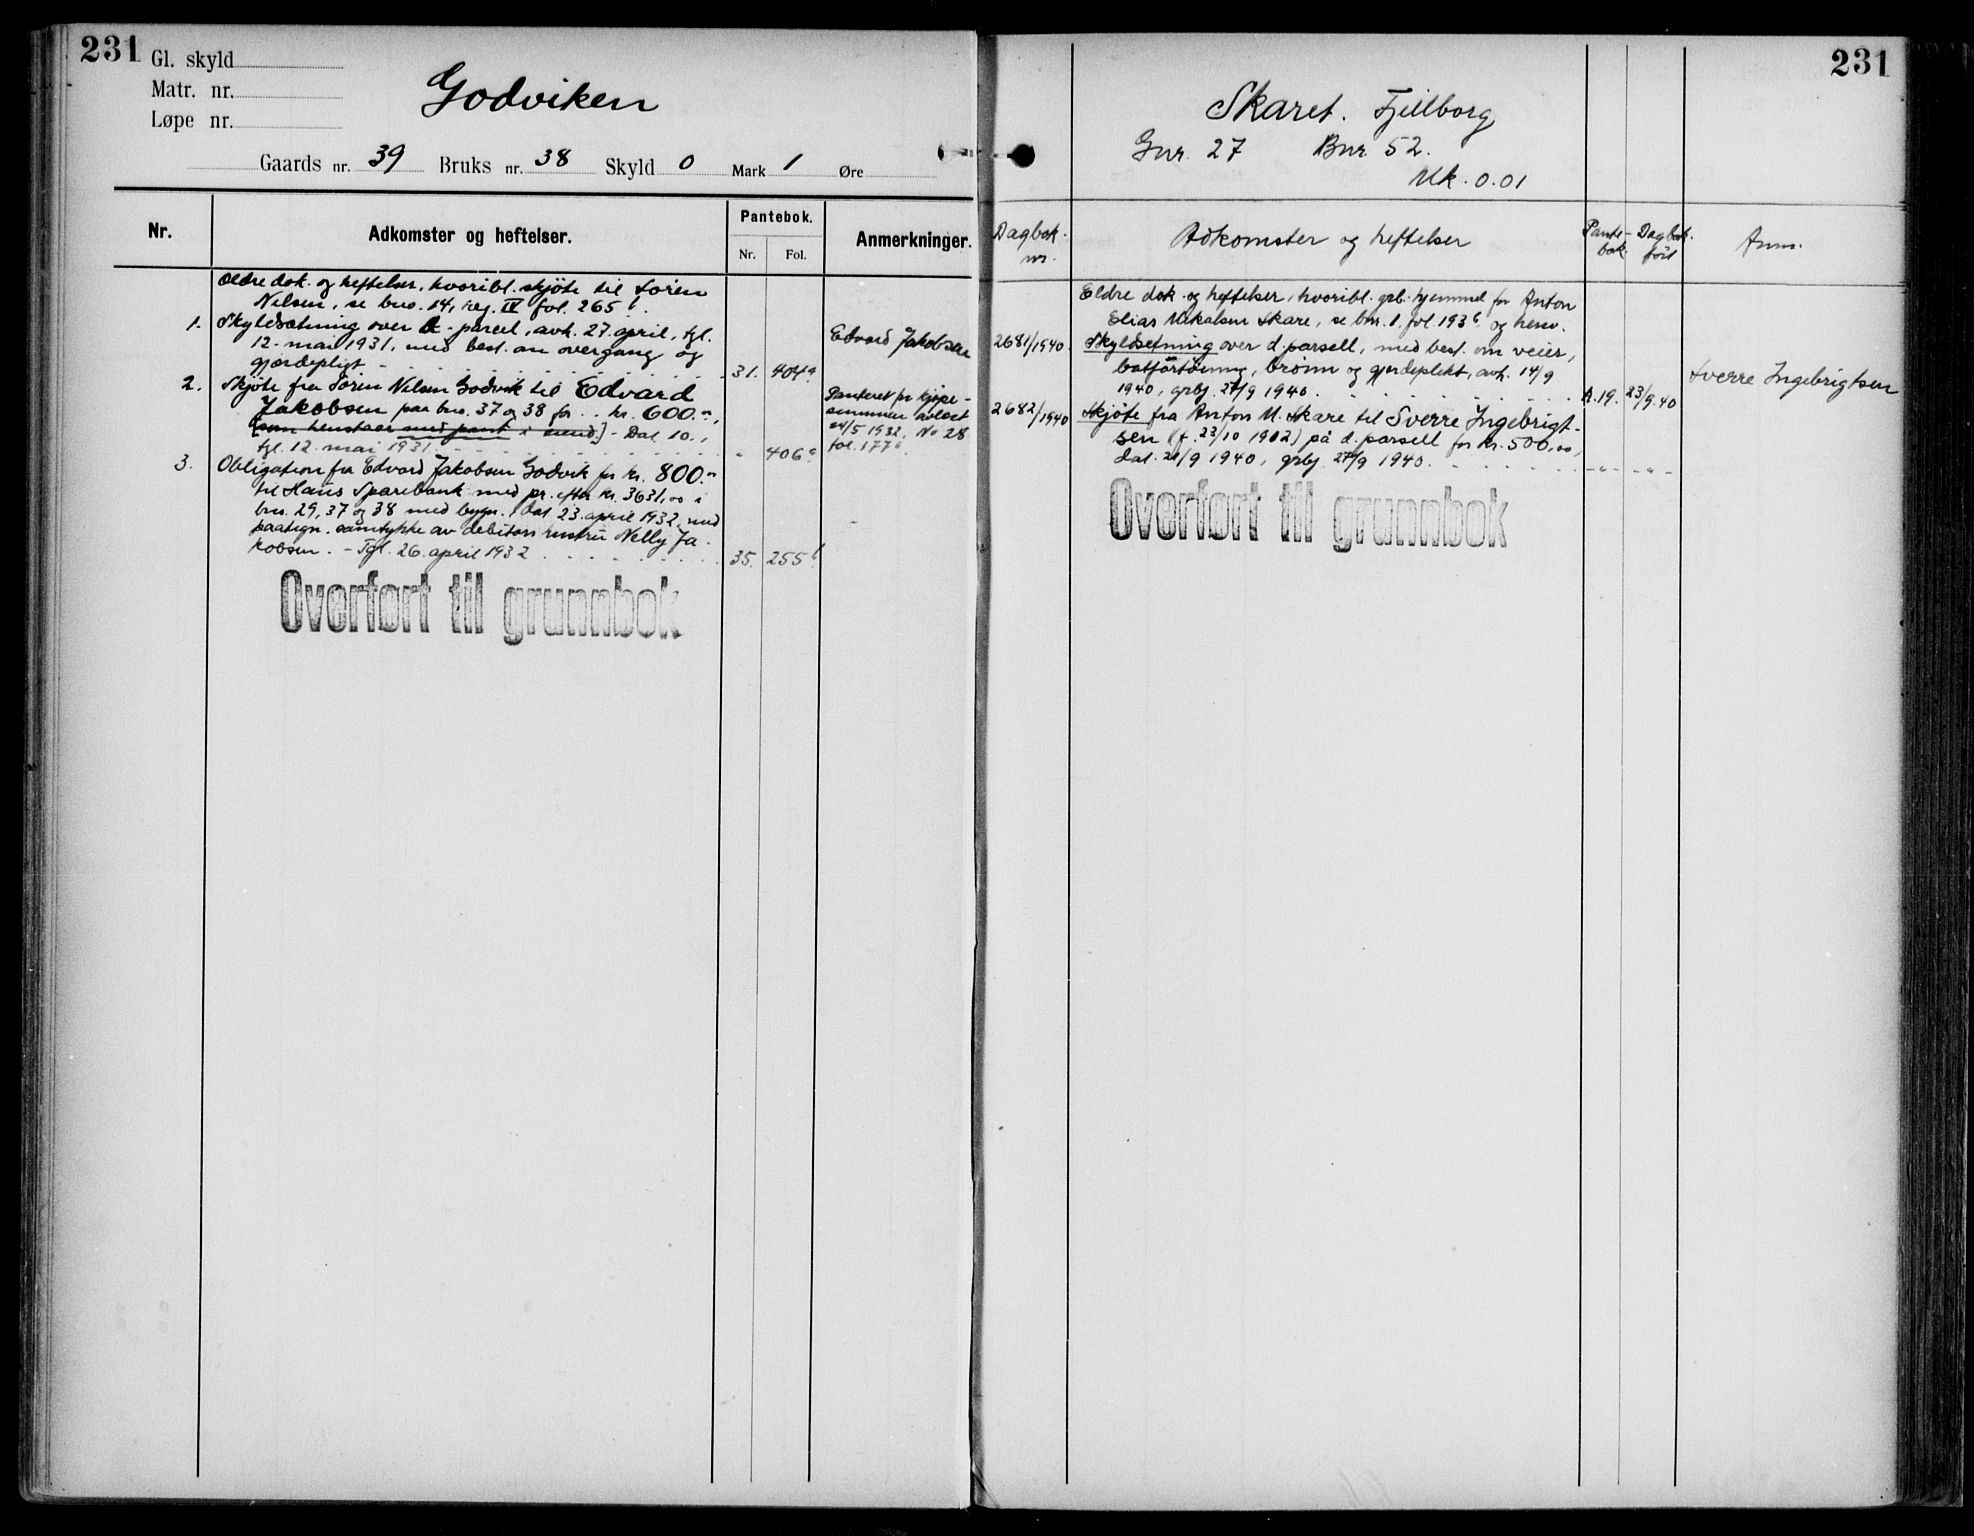 231
Gl. skyld
Matr. nr.
Løpe nr.
Godviken
Gaards nr. 39 Bruks nr. 38 Skyld 0 Mark 1 Øre
Nr.
Adkomster og heftelser.
Pantebok.
Nr. Fol.
Anmerkninger.
Ældre dok. og heftelser, hvoribl. skjöte til Sören
Nilsen, se bno. 14, reg. IV fol. 265 b.
1. Skyldsætning over d. parcel, avh. 27. april, tgl.
12. mai 1931, med best. om overgang og
gjerdepligt 31. 404a
Edvard Jakobsen
2. Skjöte fra Sören Nilsen Godvik til Edvard
Jakobsen paa bno. 37 og 38 for kr. 600.-,
[som henstaar med pant i eiend.] - Dat. 10.,
tgl. 12. mai 1931 - 406a
Panteret for kjøpe-
summen avløst
24/5 1932. No 28
fol. 177
3. Obligation fra Edvard Jakobsen Godvik for kr. 800.-
til Havis Sparebank med pr. efter kr. 3631,00 i
bno. 29, 37 og 38 med bygn. Dat. 23. april 1932, med
paategn. samtykke av debitors hustru Nelly Ja-
kobsen. - Tgl. 26. april 1932 35. 255b
Overført til grunnbok
231
Skaret. Fjellborg
Gnr. 27 Bnr. 52.
Mk. 0.01
Dagbok-
nr.
Adkomster og heftelser
Pante-
bok
Dagbok-
ført
Anm.
Eldre dok. og heftelser, hvoribl. grb. hjemmel for Anton
Elias Mikalsen Skare, se bnr. 1, fol. 193b og henv.
2681/1940. Skyldsetning over d. parsell, med best. om veier,
båtfortöining, brönn og gjerdeplikt, avh. 14/9
1940, grbj. 27/9 1940. A. 19. 23/9.40
Sverre Ingebrigtsen
2682/1940 Skjöte fra Anton M. Skare til Sverre Ingebrigt-
sen (f. 23/10 1902) på d. parsell for kr. 500,00,
dat. 21/9 1940, grbj. 27/9 1940. -"- -"-
Overført til grunnbok